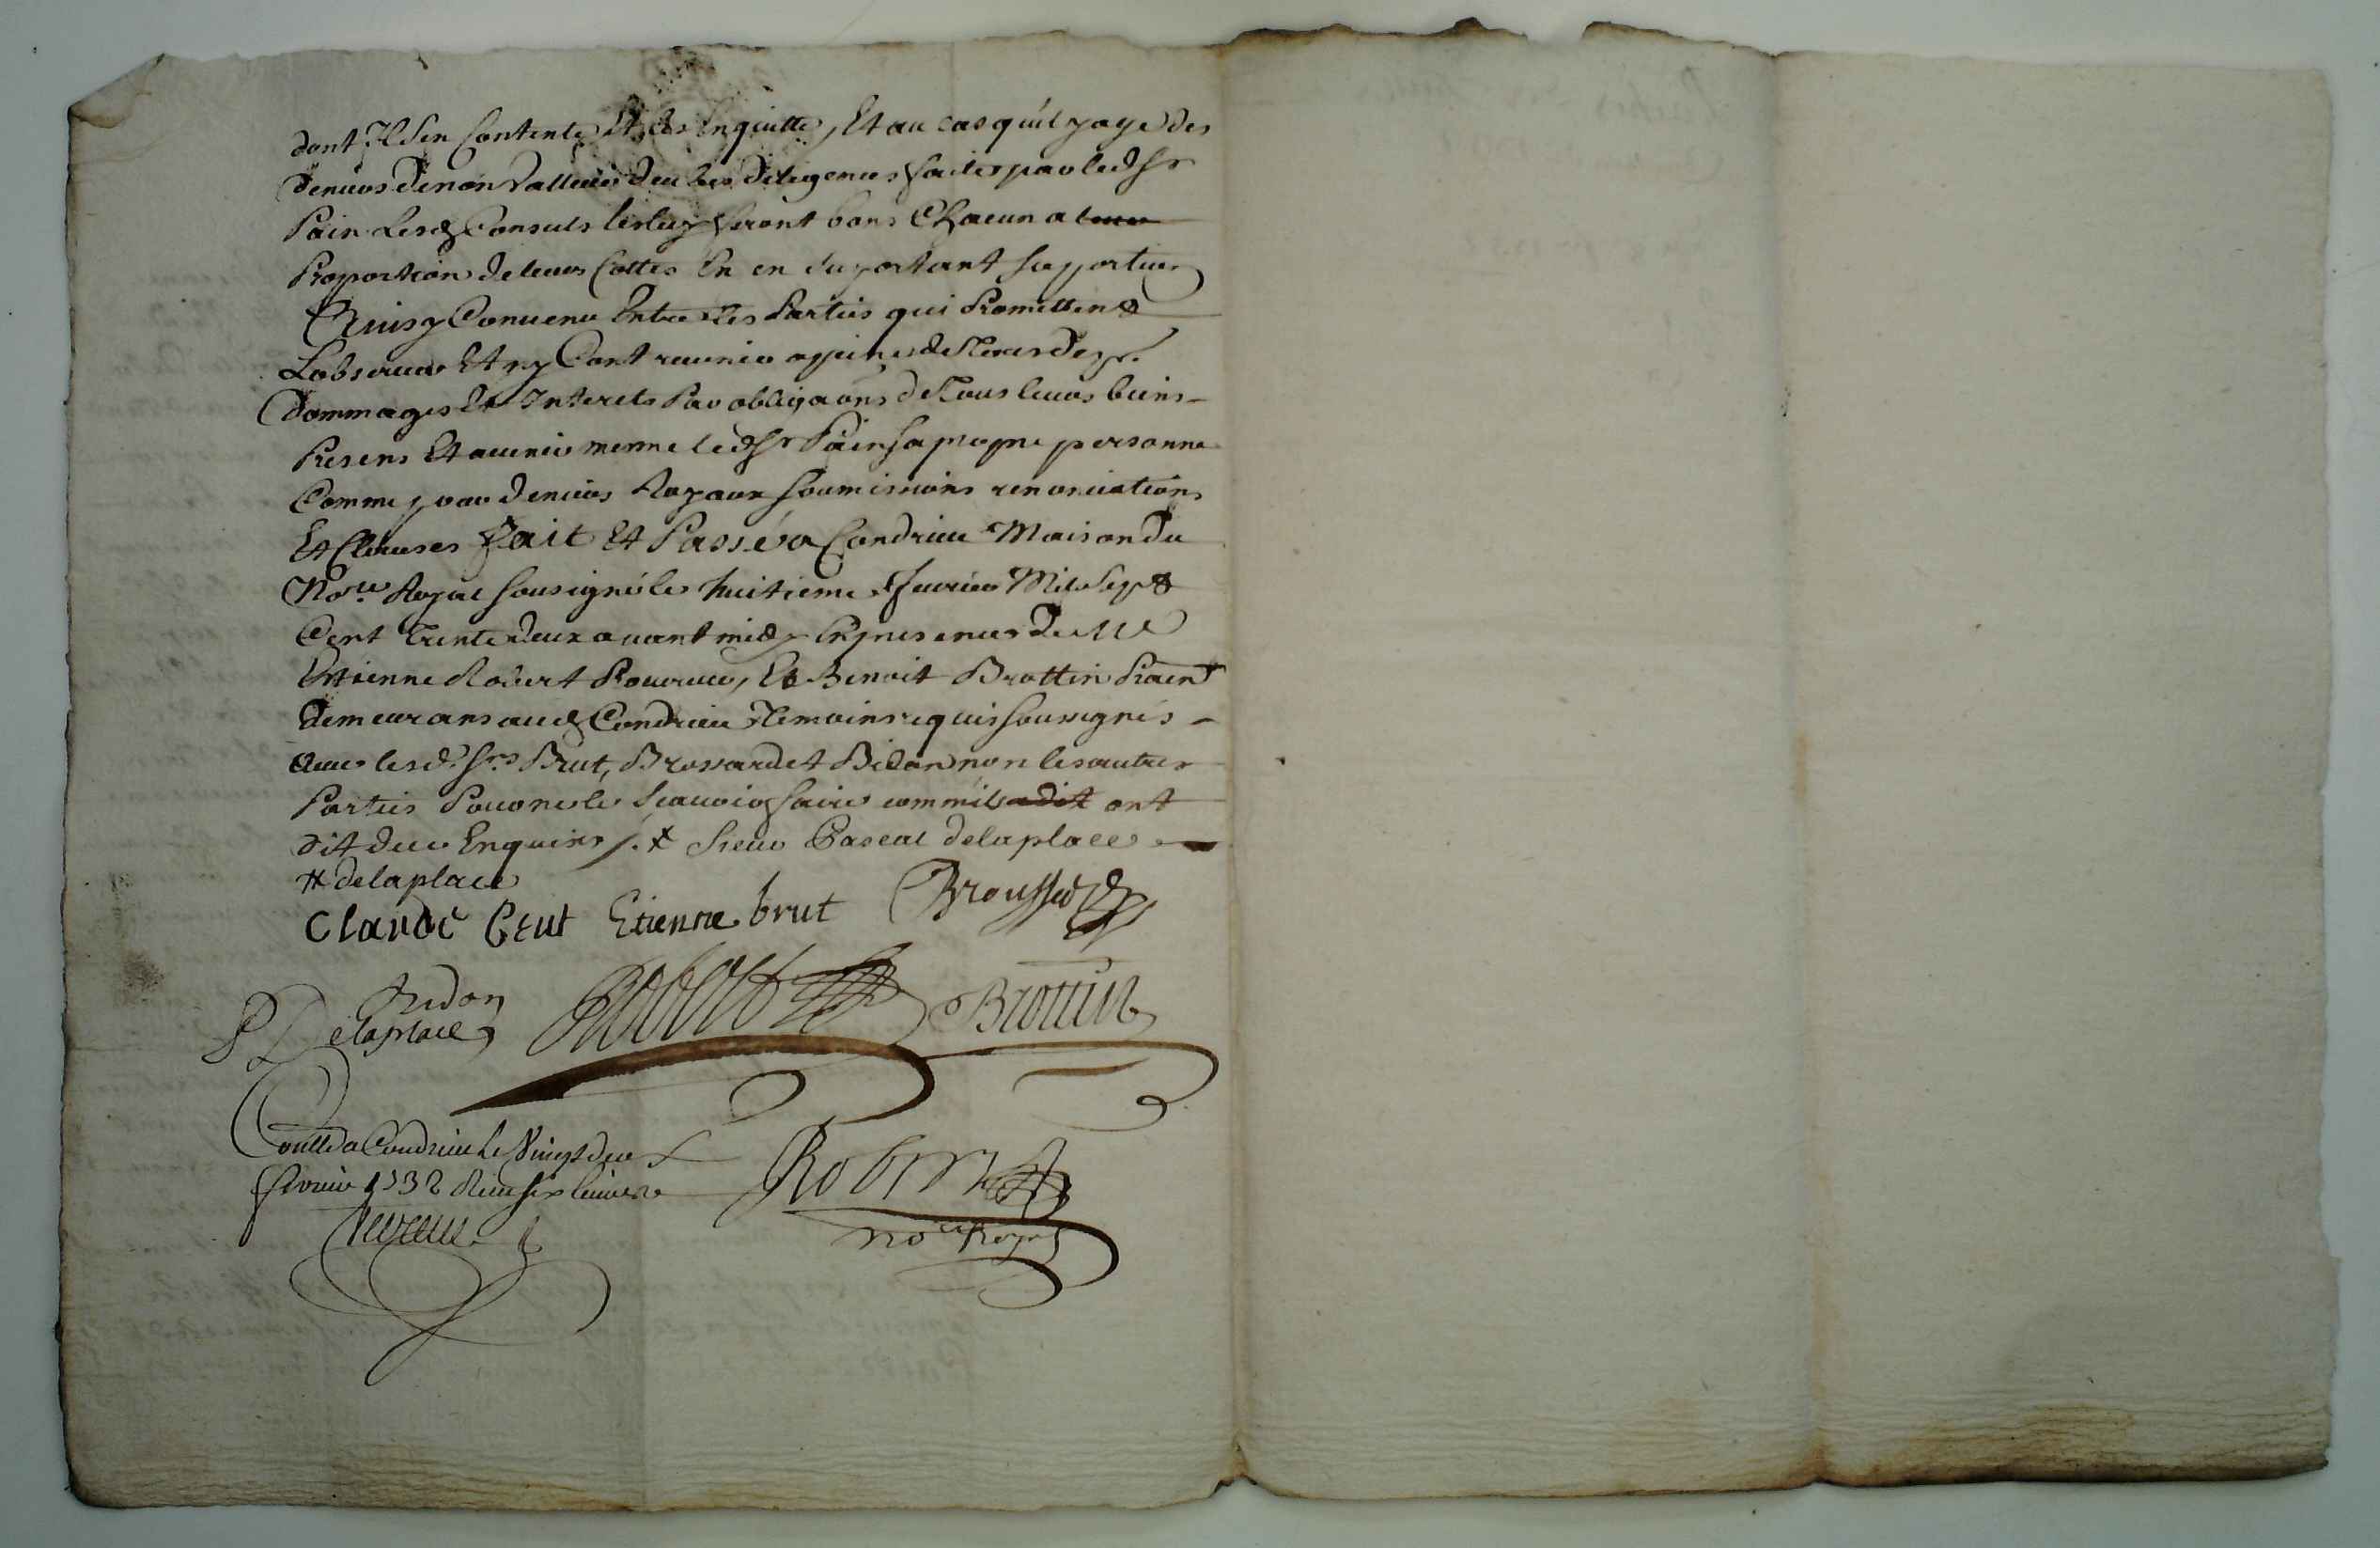 dont Il sen Contente Et les Enquitte, Et au cas quil y aye des
deniers de non valleur deu les diligences faites par led Sr
Pain Lesd Consuls les luy feront bons Chacun a
Proportion de leurs Cottes En en suportant sa portion
Ainsy Convenu Entre les Parties qui Promettent
Lobserver Et ny Contrevenir a peine de Tous deps
dommages Et Interets Par obligaons de Tous leurs biens
Presens Et avenir meme led Sr Pain sa propre personne
Comme pour deniers Royaux soumissions renonciations
Et Clauses Fait Et Passé a Condrieu Maison du
Nore Royal sousigné le huitieme fevrier Mil Sept
Cent Trente deux avant midy En presence de Me
Ettienne Robert Procureur, Et Benoit Brottin Praen
demeurans aud Condrieu Temoins requis soussignés
avec lesd. Srs Brut, Brossard et Bidon non les autres
Parties Pour ne le Scavoir faire comm'ils a dit ont
dit de ce Enquis /. # Sieur Pascal delaplace
# delaplace
Claude Brut Etienne brut Broussard
Bidon
P Delaplace Robert Brottin
Conllé a Condrieu le Vingt deux
fevrier 1732 Reçu six livres
Robert
nore Royal